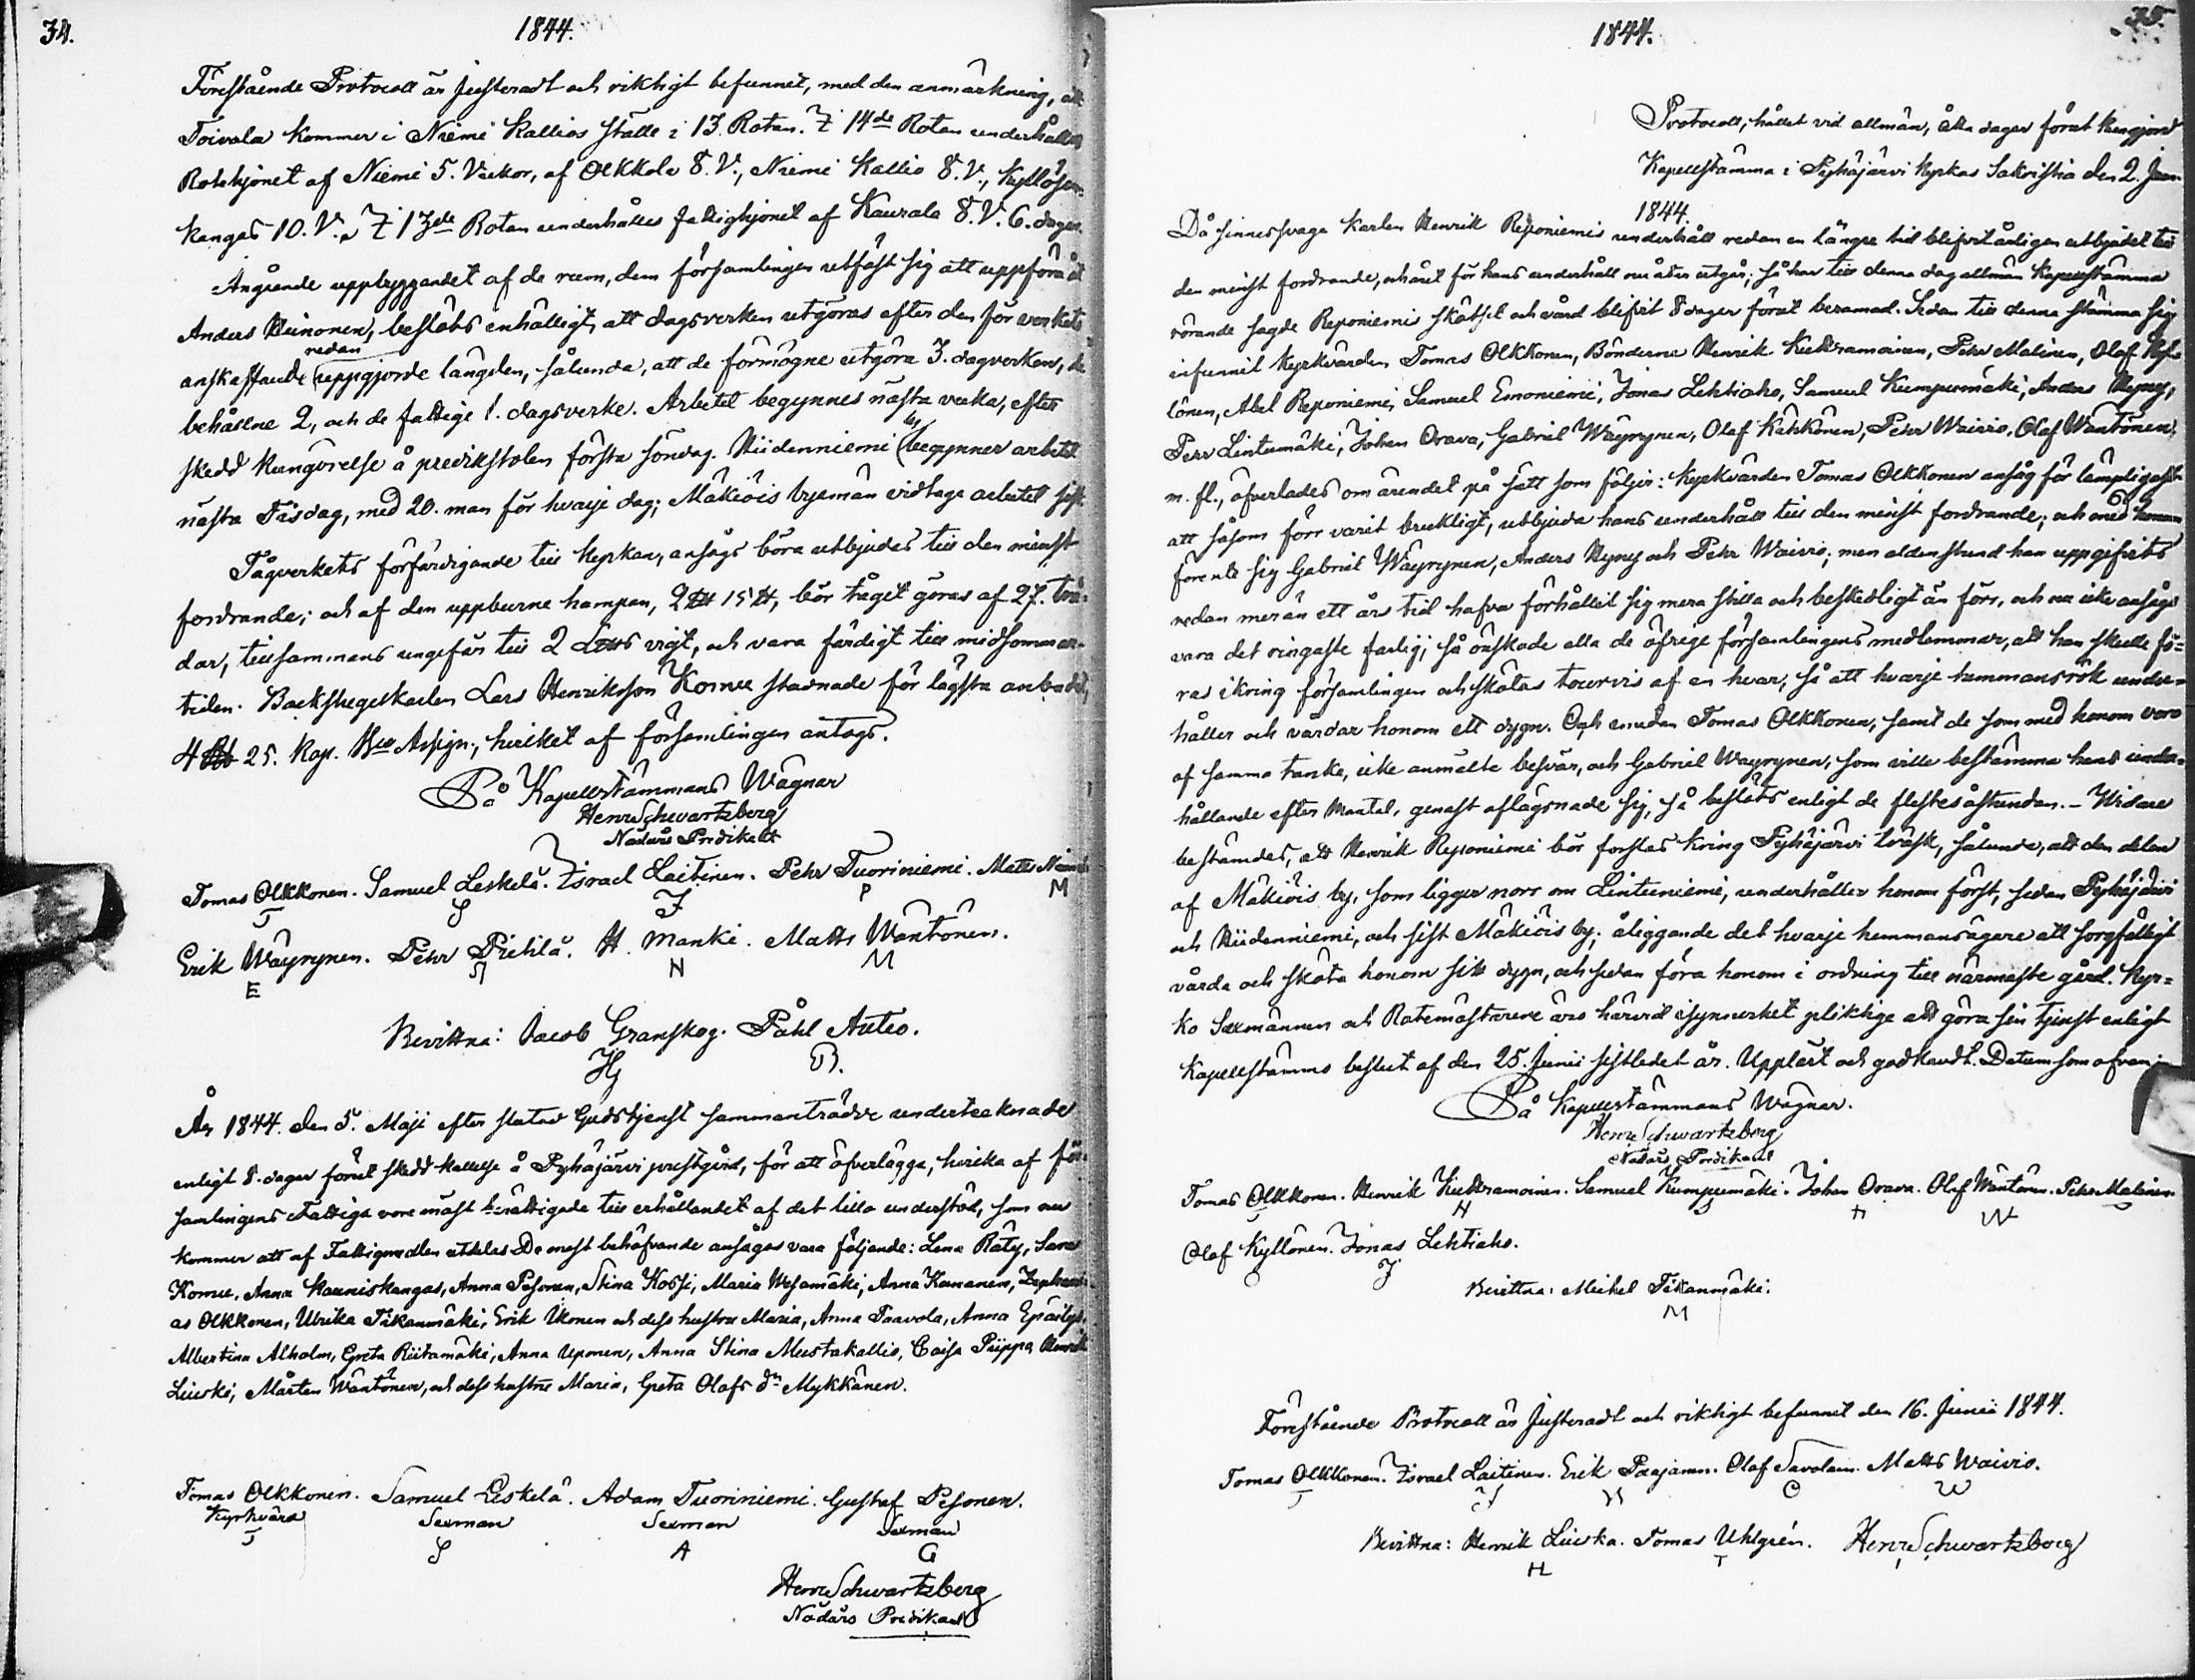 34.
1844.
Förestående Protocoll är justeradt och riktigt befunnet, med den anmärkning, att
Toivola kommer i Niemi Kallios ställe i 13. Rotan. I 14de Rotan underhålles
Rotehjonet af Niemi 5. Veckor, af Olkkola 8. V., Niemi Kallio 8. V., Kyllösen-
kangas 10. V., I 13de Rotan underhålles fattighjonet af Kaurala 8. V. 6. dagar.
Angående uppbyggandet af de rum, dem församlingen utfäst sig att uppföra åt
Anders Leinonen, beslöts enhälligt, att dagsverken utgöras efter den för verkets
redan
anskaffande uppgjorde längden, sålunda, att de förmögne utgöra 3. dagsverken, de
behållne 2, och de fattige 1. dagsverke. Arbetet begynnes nästa vecka, efter
skedd kungörelse å predikstolen första söndag. Hiidenniemi by begynner arbetet
nästa Tisdag, med 20. man för hvarje dag; Mäkiöis byemän vidtaga arbetet sist.
Tågverkets förfärdigande till kyrkan, ansågs böra utbjudas till den minst
fordrande; och af den uppburne hampan, 2 L℔ 15 ℔, bör tåget göras af 27. trå-
dar, tillsammans ungefär till 2 L℔s vigt, och vara färdigt till midsommar-
tiden. Backstugukarlen Lars Henriksson Komu stadnade för lägsta anbudet,
4 Rb 25. Kop. Bco Assign., hvilket af församlingen antogs.
På Kapellstämmans Wägnar
Henr. Schwartzberg
Nådårs Predikant
Tomas Olkkonen. Samuel Leskelä. Israel Laitinen. Pehr Tuoriniemi. Matts Niemi
T S J P M
Erik Wäyrynen. Pehr Pietilä. H. Manki. Matts Wäntönen.
E P H M
Bevittna: Jacob Granskog. Påhl Autio.
JG P.
År 1844. den 5. Maji efter slutad Gudstjenst sammanträdde undertecknade
enligt 8. dagar förut skedd kallelse å Pyhäjärvi prestgård, för att öfverlägga, hvilka af för-
samlingens Fattiga vore mäst berättigade till erhållandet af det lilla understöd, som nu
kommer att af Fattigmedlen utdelas. De mest behöfvande ansågos vara följande: Lena Räty, Sara
Komu, Anna Kauniskangas, Anna Pesonen, Stina Kossi, Maria Wesamäki, Anna Kananen, Zephani-
as Olkkonen, Ulrika Tikanmäki, Erik Ukonen och dess hustru Maria, Anna Paavola, Anna Epäilys,
Albertina Alholm, Greta Riitamäki, Anna Uponen, Anna Stina Mustakallio, Caisa Piippa, Henrik
Liuska, Mårten Wäntönen, och dess hustru Maria, Greta Olofs dr Mykkänen.
Tomas Olkkonen. Samuel Leskelä. Adam Tuoriniemi. Gustaf Pesonen.
Kyrkvärd Sexman Sexman Sexman
T S A G
Henr. Schwartzberg
Nådårs Predikant
35.
1844.
Protocoll, hållet vid allmän, åtta dagar förut kungjord
Kapellstämma i Pyhäjärvi Kyrkas Sakristia den 2. Jun.
1844.
Då sinnessvaga karlen Henrik Reponiemis underhåll redan en längre tid blifvit årligen utbjudet till
den minst fordrande, och året för hans underhåll nu åter utgår; så har till denna dag allmän Kapellstämma
rörande sagde Reponiemis skötsel och vård blifvit 8 dagar förut beramad. Sedan till denna stämma sig
infunnit Kyrkvärden Tomas Olkkonen, Bönderne Henrik Kukkramoinen, Pehr Malinen, Olof Kyl-
lönen, Abel Reponiemi, Samuel Emoniemi, Jonas Lehtiaho, Samuel Kumpumäki, Anders Kyny,
Pehr Lintumäki, Johan Orava, Gabriel Wäyrynen, Olof Kähkönen, Pehr Waivio, Olof Wäntönen,
m. fl., öfverlades om ärendet på sätt som följer: Kyrkvärden Tomas Olkkonen ansåg för lämpligast
att såsom förr varit brukligt, utbjuda hans underhåll till den minst fordrande; och med honom
förente sig Gabriel Wäyrynen, Anders Kyny och Pehr Waivio; men aldenstund han uppgifvits
redan mer än ett års tid hafva förhållit sig mera stilla och beskedligt än förr, och nu icke ansågs
vara det ringaste farlig, så önskade alla de öfrige församlingens medlemmar, att han skulle fö-
ras ikring församlingen och skötas tourvis af en hvar, så att hvarje hemmansrök under-
håller och vårdar honom ett dygn. Och emedan Tomas Olkkonen, samt de som med honom voro
af samma tanke, icke anmälte besvär, och Gabriel Wäyrynen, som ville bestämma hans under-
hållande efter Mantal, genast aflägsnade sig, så beslöts enligt de flestes åstundan. – Widare
bestämdes, att Henrik Reponiemi bör forslas kring Pyhäjärvi träsk, sålunda, att den delen
af Mäkiöis by, som ligger norr om Lintuniemi, underhåller honom först, sedan Pyhäjärvi
och Hiidenniemi, och sist Mäkiöis by; åliggande det hvarje hemmansägare att sorgfälligt
vårda och sköta honom sitt dygn, och sedan föra honom i ordning till närmaste gård. Kyr-
ko Sexmännen och Rotemästarene äro härvid i synnerhet pliktige att göra sin tjenst enligt
Kapellstämmo beslut af den 25. Junii sistledet år. Uppläst och godkändt. Datum som ofvan.
På Kapellstämmans Wägnar.
Henr. Schwartzberg
Nådårs Predikant
Tomas Olkkonen. Henrik Kukkramoinen. Samuel Kumpumäki. Johan Orava. Olof Wäntönen. Pehr Malinen.
T H S H W
Olof Kyllönen. Jonas Lehtiaho.
O J
Bevittna: Mickel Tikanmäki.
M
Förestående Protocoll är Justeradt och riktigt befunnit den 16. Junii 1844.
Tomas Olkkonen. Israel Laitinen. Erik Paajanen. Olof Savolain. Matts Waivio.
T J H O W
Bevittna: Henrik Liuska. Tomas Uhlgrén. Henr. Schwartzberg
H T